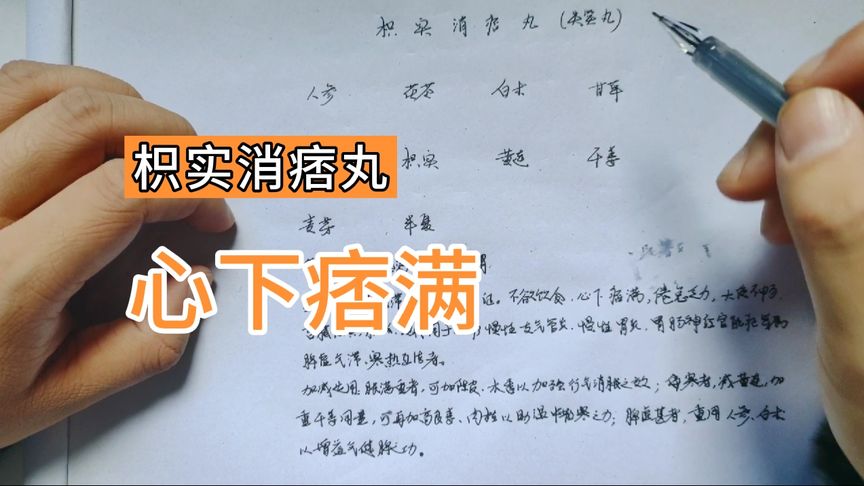 枳实消痞丸(失笑丸)
人参 茯苓 白术 甘草
枳实 黄连 干姜
枳实消痞丸
麦芽 半夏
心下痞满
不欲饮食、心下痞满,倦怠乏力,大便不
慢性支气管炎、慢性胃炎、胃肠神经官能症等属
脾虚气滞、寒热互结者。
加减化用:胀满重者,可加陈皮、木香以加强行气消胀之效;偏寒者,减黄连,加
重干姜用量,可再加高良姜、肉桂以助温中散寒之力;脾虚甚者,重用人参、白术
以增益气健脾之功。